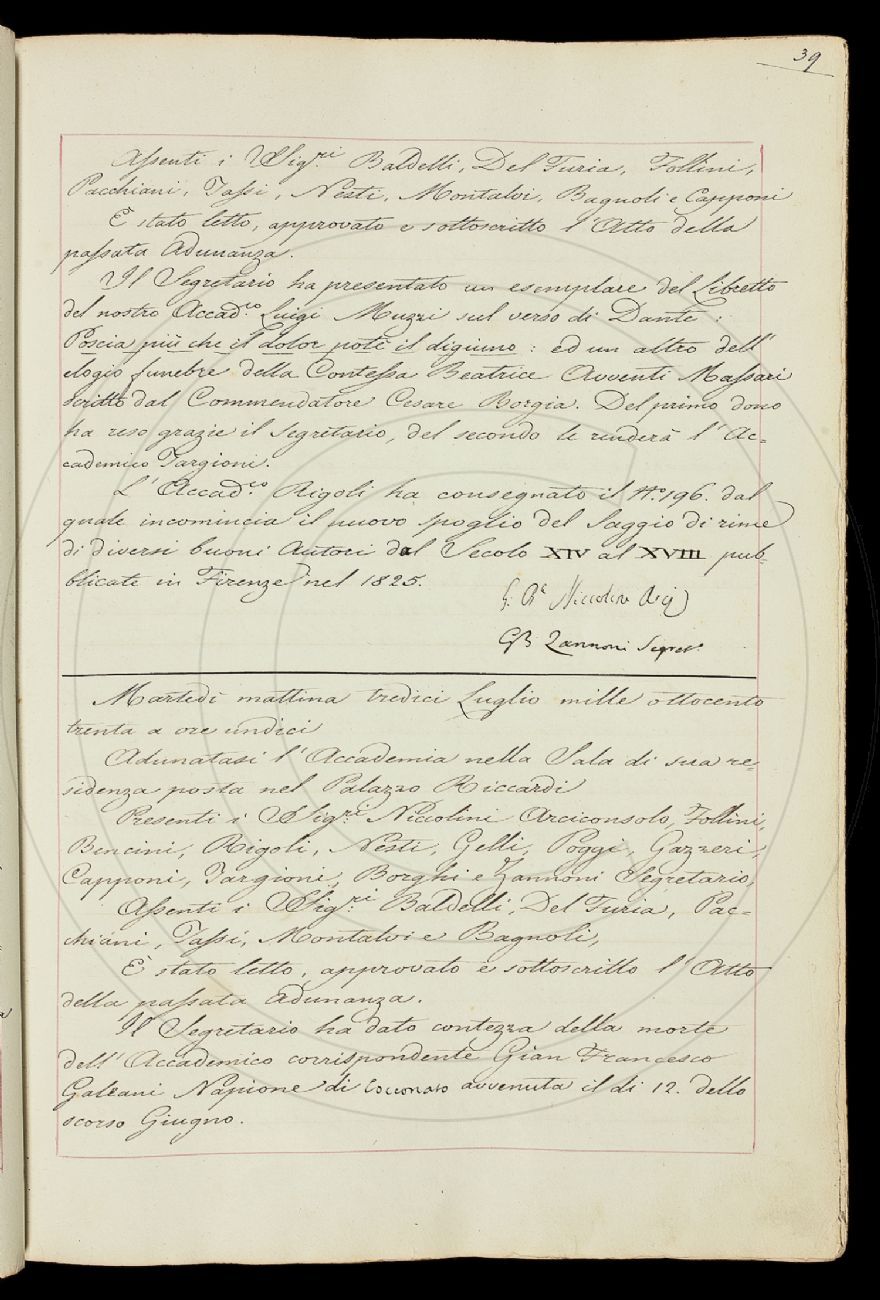 39
Assenti i Sig.ri Baldelli, Del Furia, Follini,
Pacchiani, Tassi, Nesti, Montalvi, Bagnoli e Capponi
È stato letto, approvato e sottoscritto l'Atto della
passata Adunanza.
Il Segretario ha presentato un esemplare del Libretto
del nostro Accad.co Luigi Muzzi sul verso di Dante:
Poscia più che il dolor potè il digiuno: ed un altro dell'
elogio funebre della Contessa Beatrice Avventi Massari
scritto dal Commendatore Cesare Borgia. Del primo dono
ha reso grazie il Segretario, del secondo le renderà l'Ac=
cademico Targioni.
L'Accad.co Rigoli ha consegnato il N.o 196. dal
quale incomincia il nuovo spoglio del Saggio di rime
di diversi buoni Autori dal Secolo XIV al XVIII pub=
blicate in Firenze nel 1825.
G. B. Niccolini
GB Zannoni Segret.
Martedì mattina tredici Luglio mille ottocento
trenta a ore undici
Adunatasi l'Accademia nella Sala di sua re=
sidenza posta nel Palazzo Riccardi
Presenti i Sig.ri Niccolini Arciconsolo, Follini,
Bencini, Rigoli, Nesti, Gelli, Poggi, Gazzeri,
Capponi, Targioni, Borghi e Zannoni Segretario,
Assenti i Sig.ri Baldelli, Del Furia, Pac=
chiani, Tassi, Montalvi e Bagnoli,
È stato letto, approvato e sottoscritto l'Atto
della passata Adunanza.
Il Segretario ha dato contezza della morte
dell'Accademico corrispondente Gian Francesco
Galeani Napione di Cocconato avvenuta il dì 12. dello
scorso Giugno.